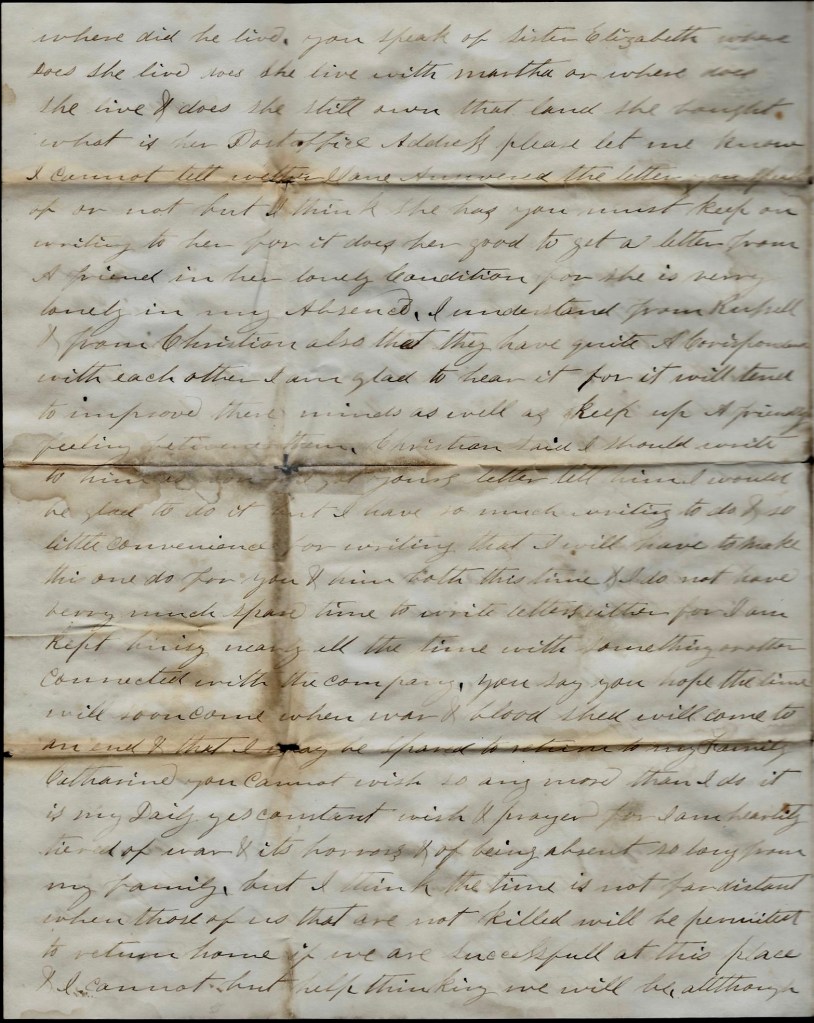 where did he live. you speak of Sister Elizabeth where
does she live does she live with martha or where does
she live & does she still own that land she bought.
what is her Postoffice Address please let me know
I cannot tell wether Jane Answered the letter you speak
of or not but I think she has you must keep on
writing to her for it does her good to get a letter from
A friend in her lonely Condition for she is verry
lonely in my Absence. I understand from Russell
& from Christian also that they have quite A Corispondence
with each other I am glad to hear it for it will tend
to improve there minds as well as Keep up A friendly
feeling between them. Christian said I should write
to him as soon as I got yours letter tell him I would
be glad to do it but I have so much writing to do & so
little convenience for writing that I will have to make
this one do for you & him both this time & I do not have
verry much spare time to write letters either for I am
Kept buisy nearly all the time with something or other
Connected with the company. you say you hope the time
will soon come when war & blood shed will come to
an end & that I may be spared to return to my Family
Catharine you cannot wish so any more than I do it
is my Daily yes constant wish & prayer for I am heartily
tiered of war & its horrors & of being absent so long from
my family. but I think the time is not far distant
when those of us that are not killed will be permitted
to return home if we are successfull at this place
& I cannot but help thinking we will be, allthough